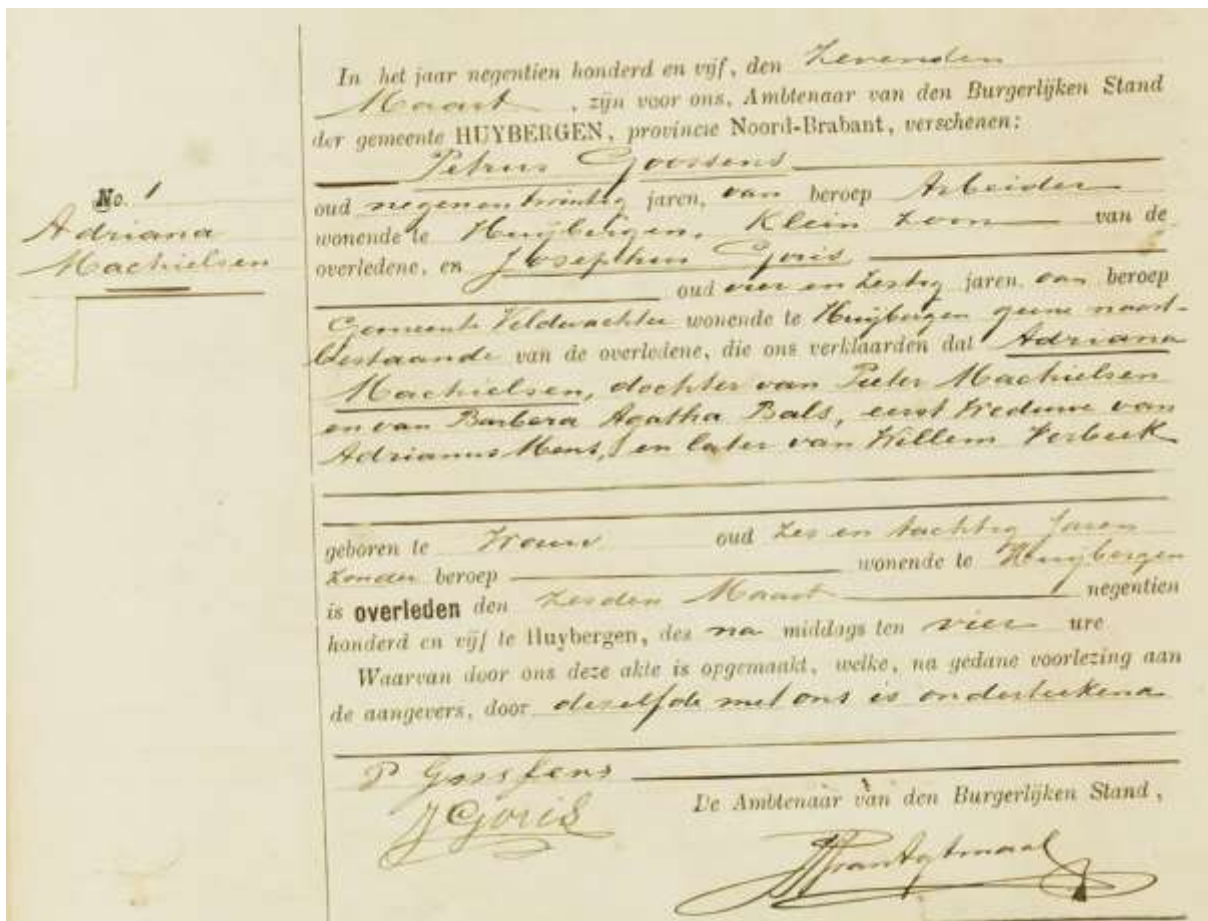 No. 1
Adriana
Machielsen
In het jaar negentien honderd en vijf, den Zevenden
Maart, zijn voor ons, Ambtenaar van den Burgerlijken Stand
der gemeente HUYBERGEN, provincie Noord-Brabant, verschenen:
Petrus Goossens
oud negenentwintig jaren, van beroep Arbeider
wonende te Huijbergen, Klein zoon van de
overledene, en Josephus Goris
oud vier en zestig jaren, van beroep
Gemeente Veldwachter wonende te Huijbergen geene naast-
bestaande van de overledene, die ons verklaarden dat Adriana
Machielsen, dochter van Pieter Machielsen
en van Barbera Agatha Bals, eerst Weduwe van
Adrianus Mens, en later van Willem Verbeek
geboren te Wouw oud zes en tachtig Jaren
zonder beroep wonende te Huijbergen
is overleden den zesden Maart negentien
honderd en vijf te Huybergen, des na middags ten vier ure
Waarvan door ons deze akte is opgemaakt, welke, na gedane voorlezing aan
de aangevers, door dezelfde met ons is onderteekend
P Goossens
J Goris
De Ambtenaar van den Burgerlijken Stand,